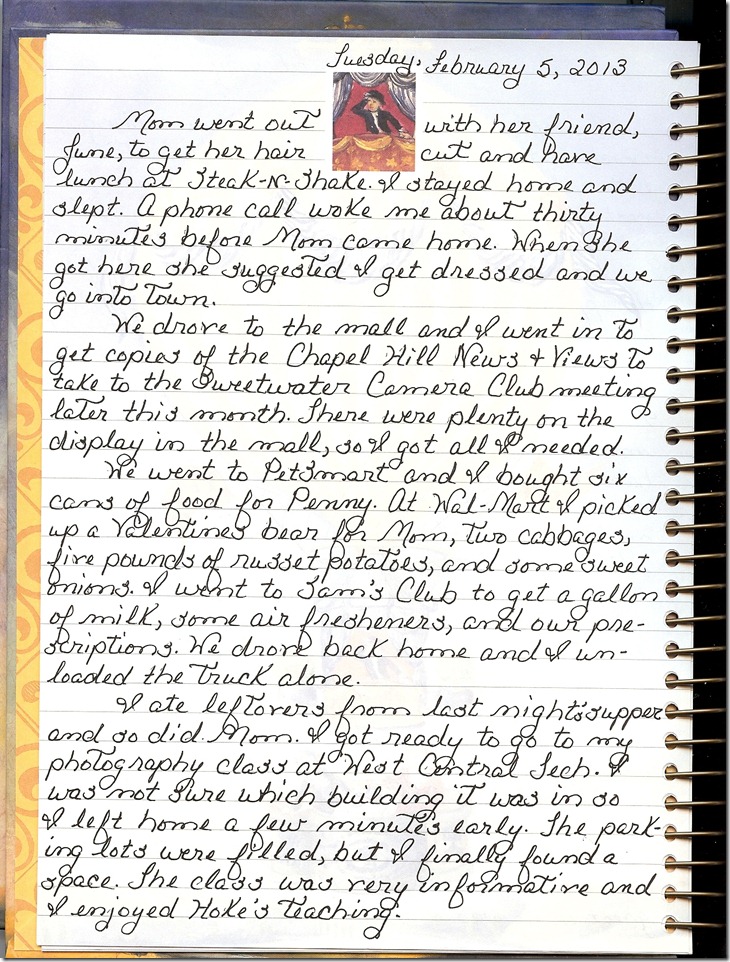 Tuesday, February 5, 2013
Mom went out with her friend,
June, to get her hair cut and have
lunch at Steak-N-Shake. I stayed home and
slept. A phone call woke me about thirty
minutes before Mom came home. When she
got here she suggested I get dressed and we
go into town.
We drove to the mall and I went in to
get copies of the Chapel Hill News & Views to
take to the Sweetwater Camera Club meeting
later this month. There were plenty on the
display in the mall, so I got all I needed.
We went to PetSmart and I bought six
cans of food for Penny. At Wal-Mart I picked
up a Valentines bear for Mom, two cabbages,
five pounds of russet potatoes, and some sweet
onions. I went to Sam's Club to get a gallon
of milk, some air fresheners, and our pre-
scriptions. We drove back home and I un-
loaded the truck alone.
I ate leftovers from last night's supper
and so did Mom. I got ready to go to my
photography class at West Central Tech. I
was not sure which building it was in so
I left home a few minutes early. The park-
ing lots were filled, but I finally found a
space. The class was very informative and
I enjoyed Hoke's teaching.